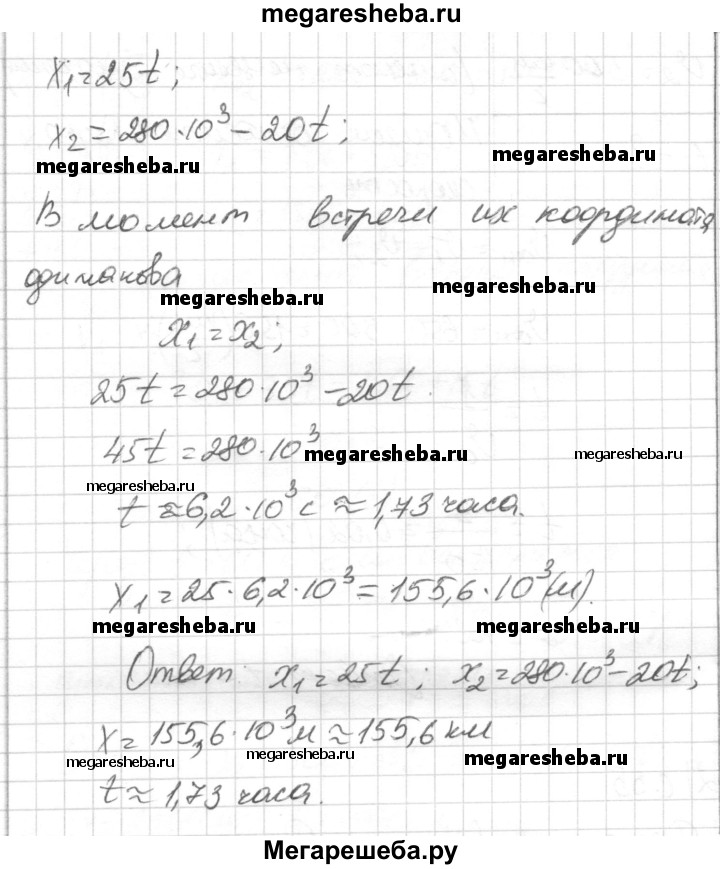 megaresheba.ru
x₁=25t;
x₂=280·10³-20t;
megaresheba.ru megaresheba.ru
В момент встречи их координата
одинакова
megaresheba.ru megaresheba.ru
x₁=x₂;
25t=280·10³-20t.
45t=280·10³
megaresheba.ru megaresheba.ru
megaresheba.ru
t≈6,2·10³с≈1,73 часа.
x₁=25·6,2·10³=155,6·10³(м).
megaresheba.ru megaresheba.ru
Ответ: x₁=25t; x₂=280·10³-20t;
x=155,6·10³м≈155,6 км
megaresheba.ru megaresheba.ru megaresheba.ru
t≈1,73 часа.
Мегарешеба.ру